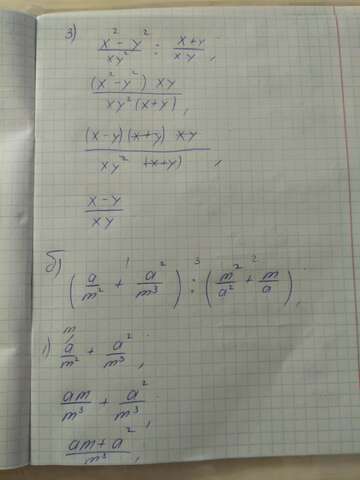 3) (x² - y²)/(xy²) : (x+y)/(xy),
((x² - y²) xy)/(xy² (x+y)),
((x-y)(x+y) xy)/(xy² (x+y)),
(x-y)/(xy)
б) (a/m² + a²/m³) : (m²/a² + m/a),
1) a/m² + a²/m³,
am/m³ + a²/m³,
(am+a²)/m³,